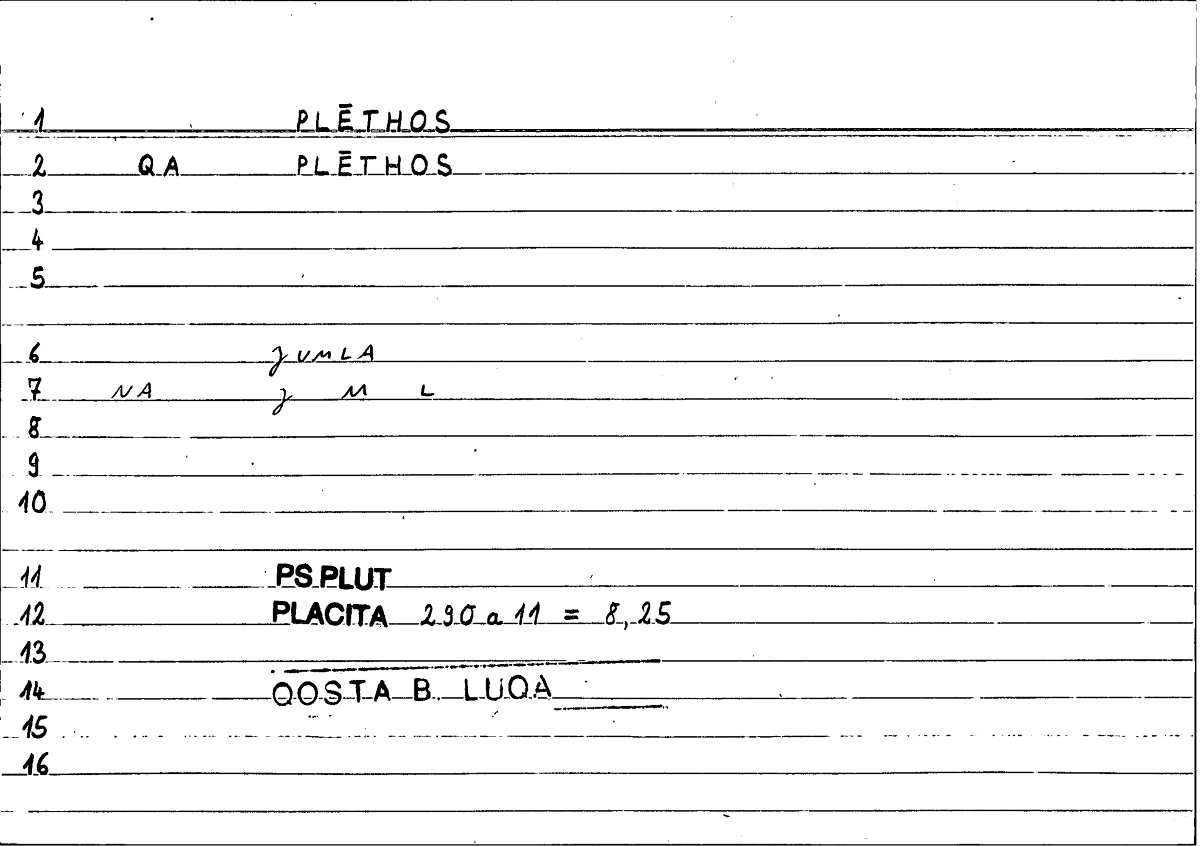 1 PLĒTHOS
2 QA PLĒTHOS
3
4
5
6 JUMLA
7 NA J M L
8
9
10
11 PS.PLUT
12 PLACITA 290 a 11 = 8,25
13
14 QOSTA B. LUQA
15
16